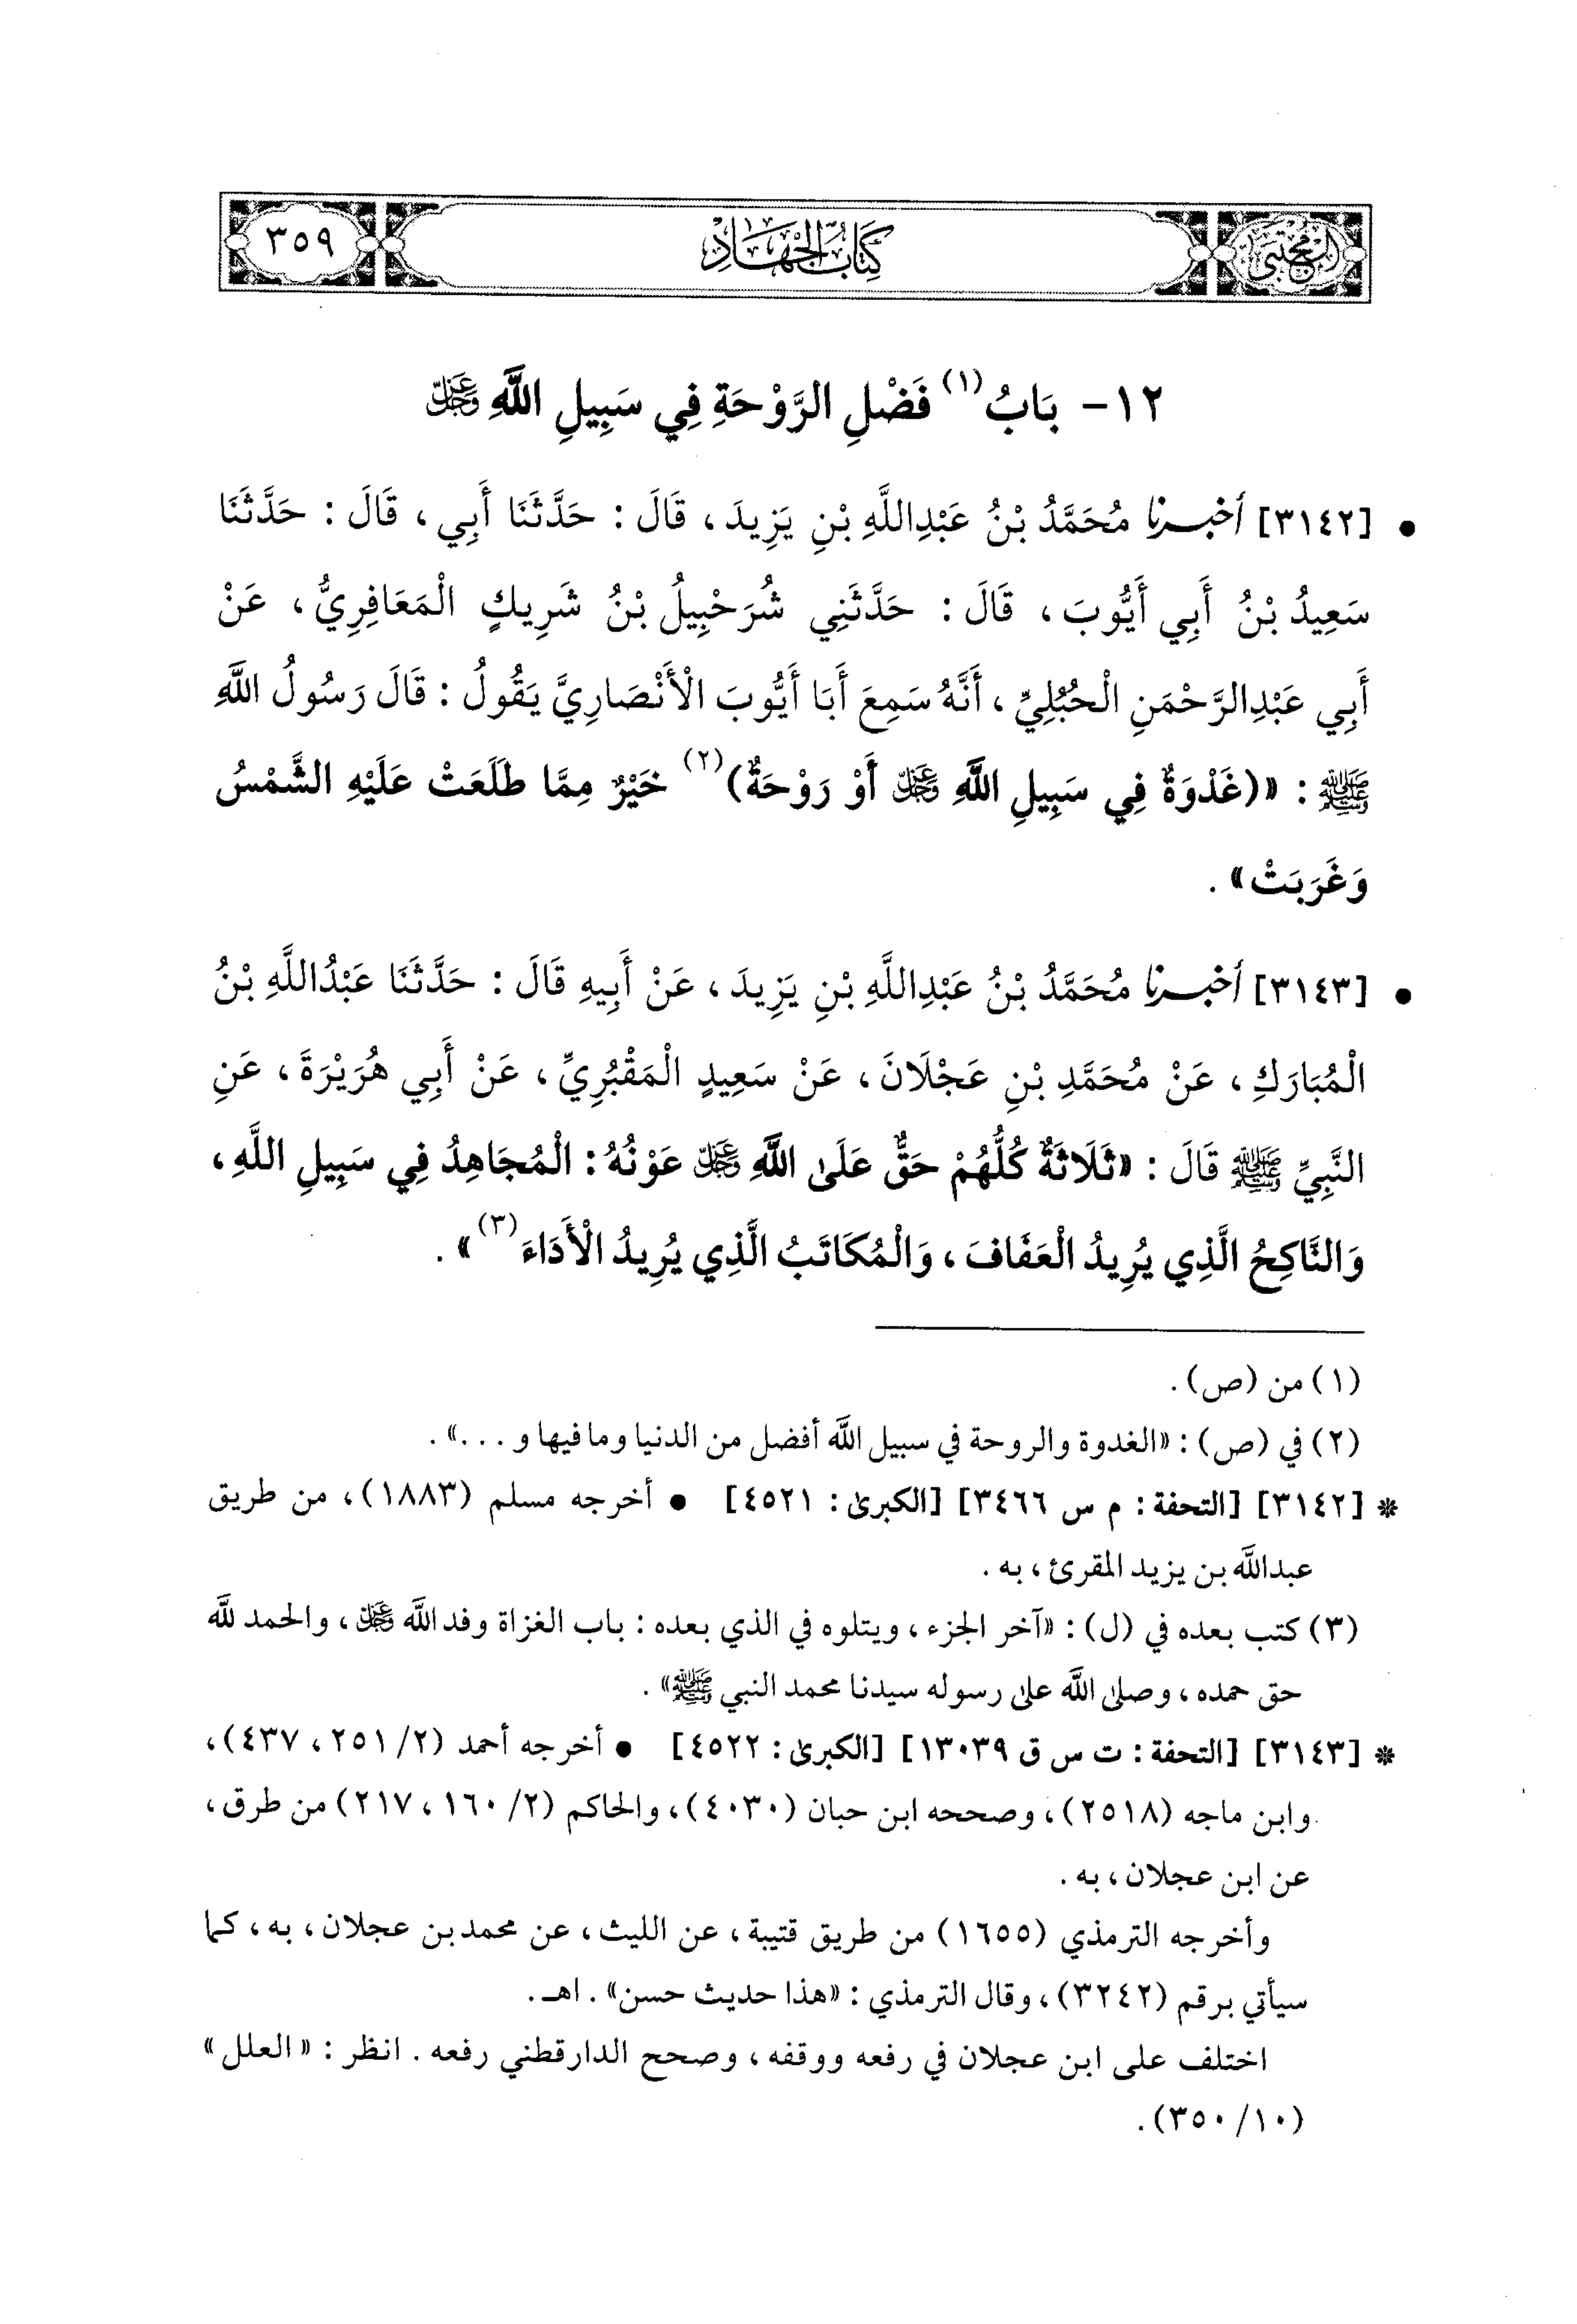 المجتبى
كتاب الجهاد
٣٥٩
١٢- بَابُ(١) فَضْلِ الرَّوْحَةِ فِي سَبِيلِ اللَّهِ عَزَّ وَجَلَّ
• [٣١٤٢] أخبرنا مُحَمَّدُ بْنُ عَبْدِاللَّهِ بْنِ يَزِيدَ، قَالَ : حَدَّثَنَا أَبِي، قَالَ : حَدَّثَنَا
سَعِيدُ بْنُ أَبِي أَيُّوبَ، قَالَ : حَدَّثَنِي شُرَحْبِيلُ بْنُ شَرِيكٍ الْمَعَافِرِيُّ، عَنْ
أَبِي عَبْدِالرَّحْمَنِ الْحُبُلِيِّ، أَنَّهُ سَمِعَ أَبَا أَيُّوبَ الْأَنْصَارِيَّ يَقُولُ : قَالَ رَسُولُ اللَّهِ
ﷺ : «(غَدْوَةٌ فِي سَبِيلِ اللَّهِ عَزَّ وَجَلَّ أَوْ رَوْحَةٌ)(٢) خَيْرٌ مِمَّا طَلَعَتْ عَلَيْهِ الشَّمْسُ
وَغَرَبَتْ» .
• [٣١٤٣] أخبرنا مُحَمَّدُ بْنُ عَبْدِاللَّهِ بْنِ يَزِيدَ، عَنْ أَبِيهِ قَالَ : حَدَّثَنَا عَبْدُاللَّهِ بْنُ
الْمُبَارَكِ، عَنْ مُحَمَّدِ بْنِ عَجْلَانَ، عَنْ سَعِيدٍ الْمَقْبُرِيِّ، عَنْ أَبِي هُرَيْرَةَ، عَنِ
النَّبِيِّ ﷺ قَالَ : «ثَلَاثَةٌ كُلُّهُمْ حَقٌّ عَلَى اللَّهِ عَزَّ وَجَلَّ عَوْنُهُ : الْمُجَاهِدُ فِي سَبِيلِ اللَّهِ،
وَالنَّاكِحُ الَّذِي يُرِيدُ الْعَفَافَ، وَالْمُكَاتَبُ الَّذِي يُرِيدُ الْأَدَاءَ(٣)» .
(١) من (ص) .
(٢) في (ص) : «الغدوة والروحة في سبيل اللَّه أفضل من الدنيا وما فيها و . . .» .
* [٣١٤٢] [التحفة : م س ٣٤٦٦] [الكبرى : ٤٥٢١] • أخرجه مسلم (١٨٨٣)، من طريق
عبداللَّه بن يزيد المقرئ، به .
(٣) كتب بعده في (ل) : «آخر الجزء، ويتلوه في الذي بعده : باب الغزاة وفد اللَّه عَزَّ وَجَلَّ، والحمد للَّه
حق حمده، وصلى اللَّه على رسوله سيدنا محمد النبي ﷺ» .
* [٣١٤٣] [التحفة : ت س ق ١٣٠٣٩] [الكبرى : ٤٥٢٢] • أخرجه أحمد (٢/ ٢٥١، ٤٣٧)،
وابن ماجه (٢٥١٨)، وصححه ابن حبان (٤٠٣٠)، والحاكم (٢/ ١٦٠، ٢١٧) من طرق،
عن ابن عجلان، به .
وأخرجه الترمذي (١٦٥٥) من طريق قتيبة، عن الليث، عن محمد بن عجلان، به، كما
سيأتي برقم (٣٢٤٢)، وقال الترمذي : «هذا حديث حسن» . اهـ .
اختلف على ابن عجلان في رفعه ووقفه، وصحح الدارقطني رفعه . انظر : «العلل»
(١٠/ ٣٥٠) .